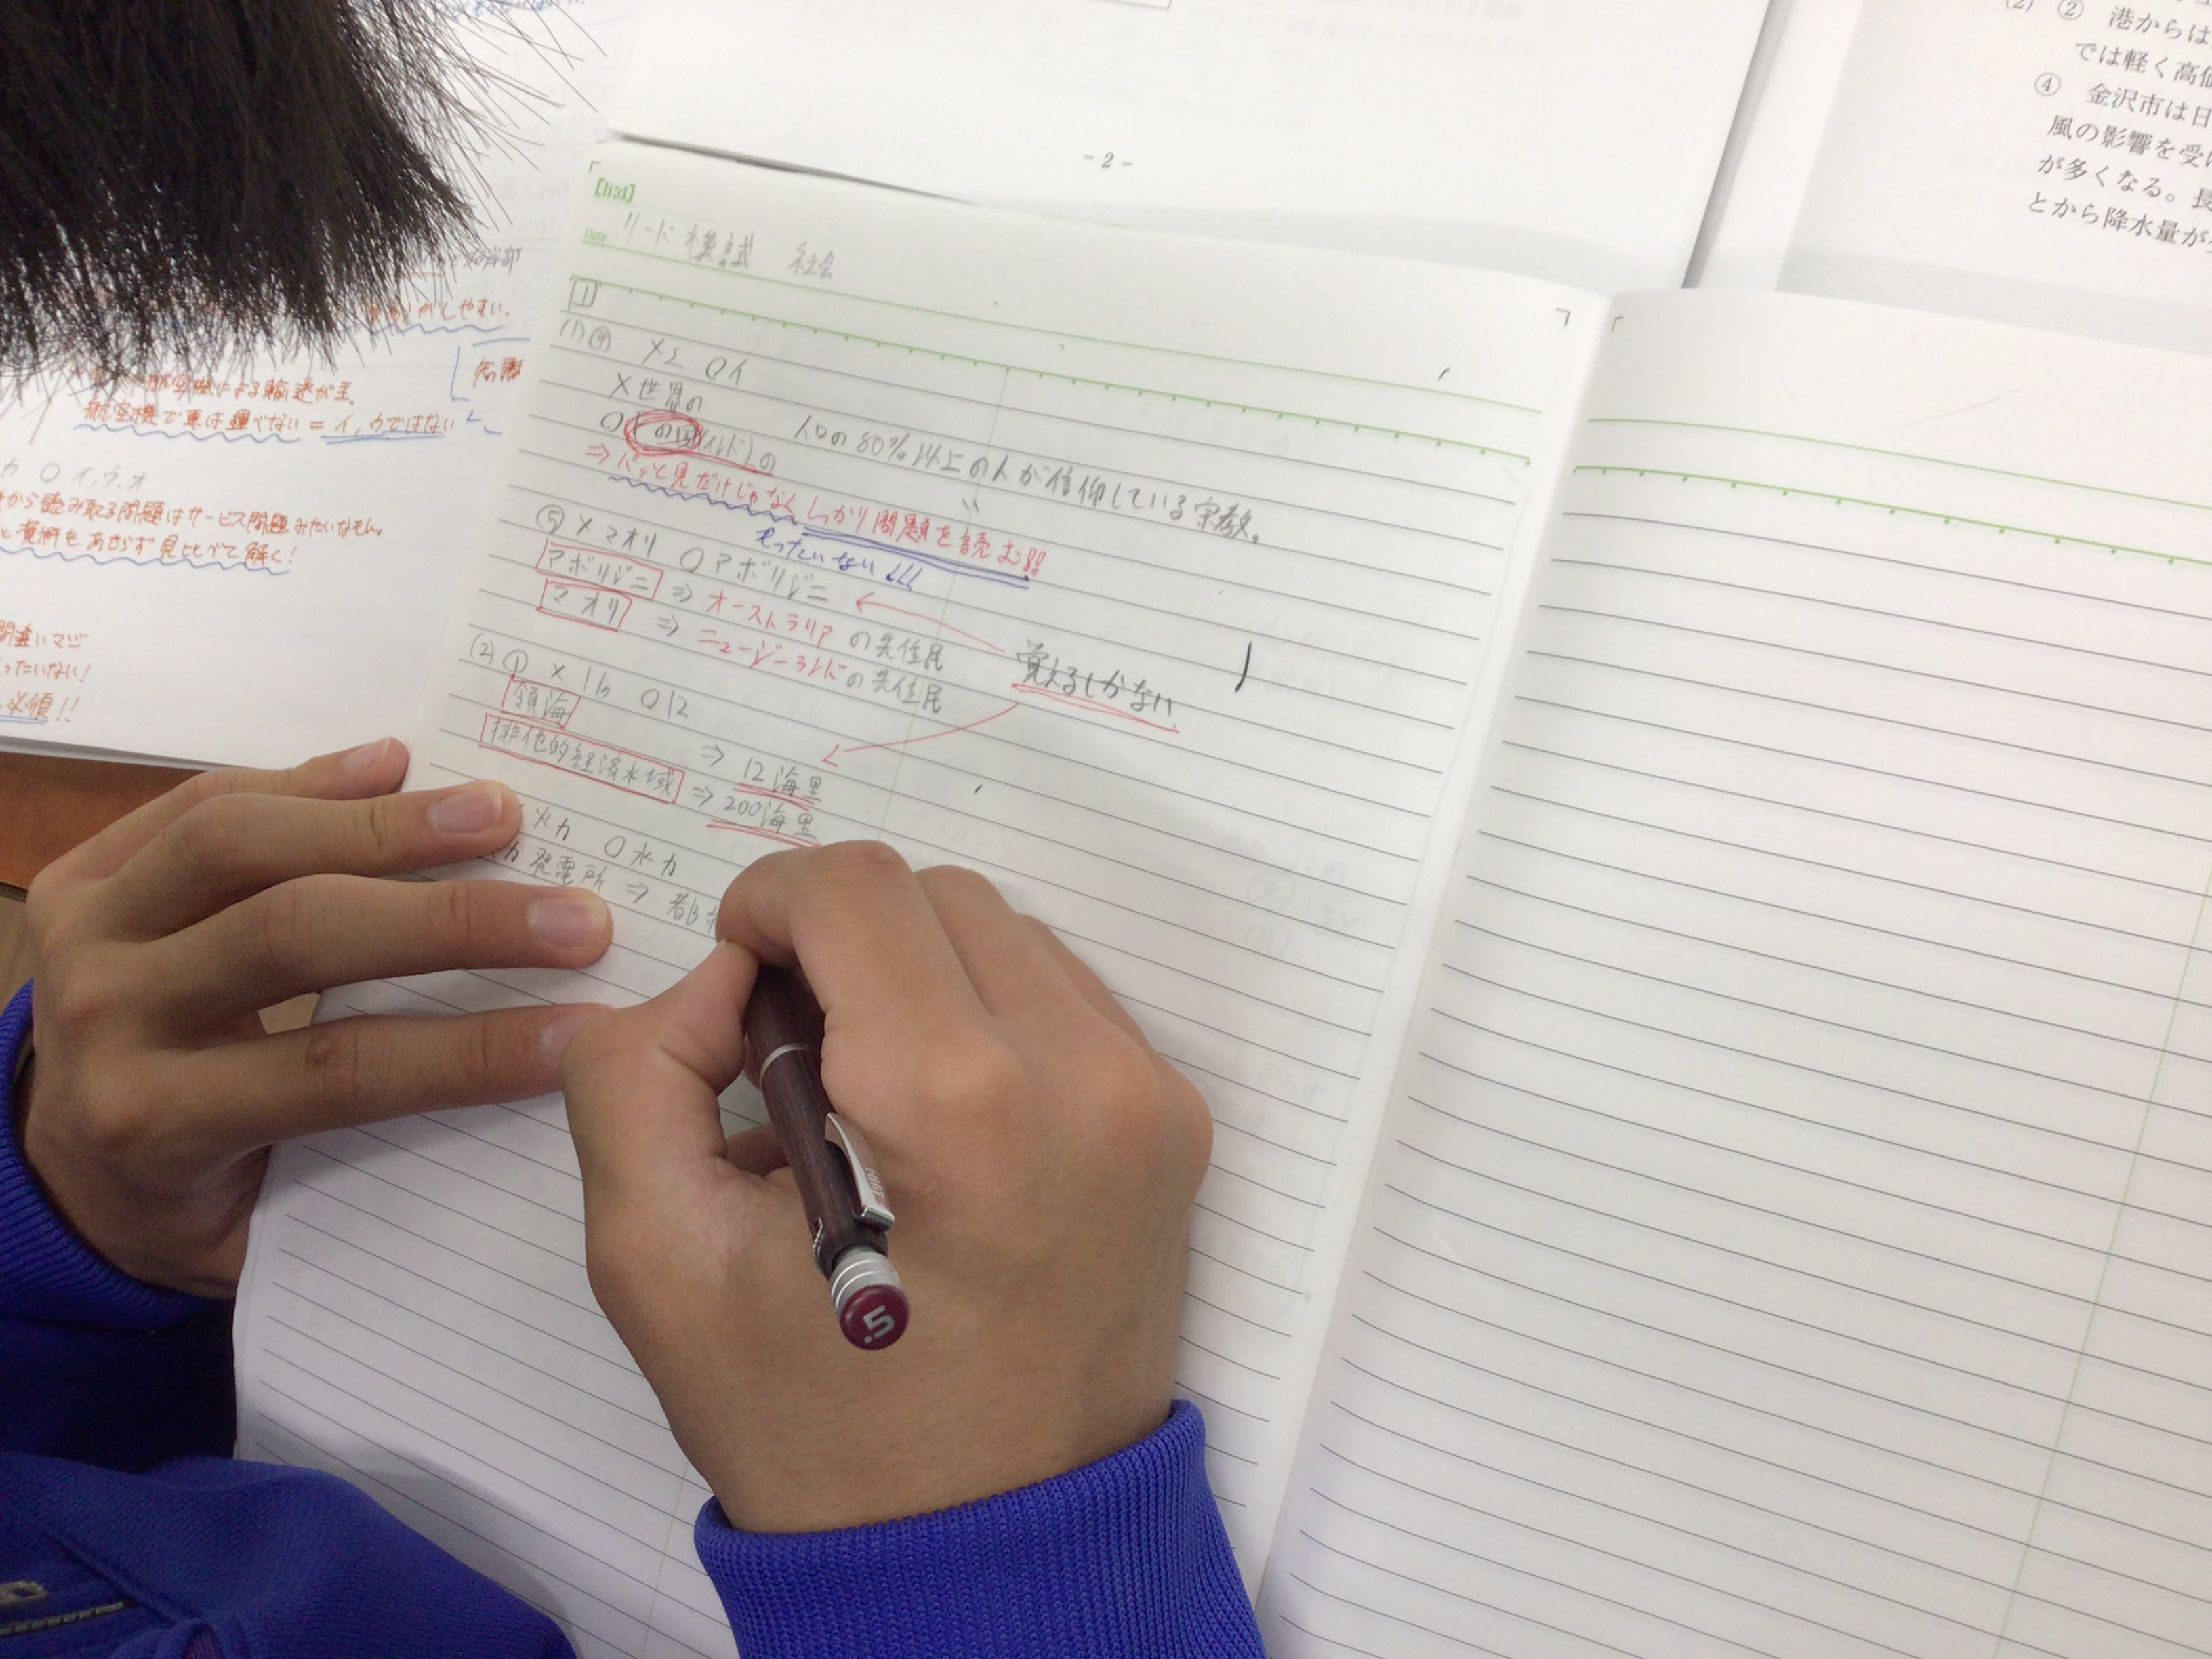 - 2 -
(2) ② 港からは
では軽く高価
④ 金沢市は日
風の影響を受け
が多くなる。長
とから降水量が
がしやすい。
知識
による輸送が主。
航空機で車は運べない = イ,ウではない
カ ○ イ,ウ,オ
から読み取る問題はサービス問題みたいなもん。
と資料をあせらず見比べて解く!
間違いマジ
ったいない!
必須!!
Date
リード模試 社会
1
(1) ④ ×エ ○イ
×世界の
○ の国(インド)の 人口の80%以上の人が信仰している宗教。
⇒パッと見だけじゃなくしっかり問題を読む!!
もったいない
⑤ ×マオリ ○アボリジニ
アボリジニ ⇒ オーストラリアの先住民
マオリ ⇒ ニュージーランドの先住民
覚えるしかない
(2) ① ×16 ○12
領海 ⇒ 12海里
排他的経済水域 ⇒ 200海里
火力 ○水力
力発電所 ⇒ 都
PILOT
5